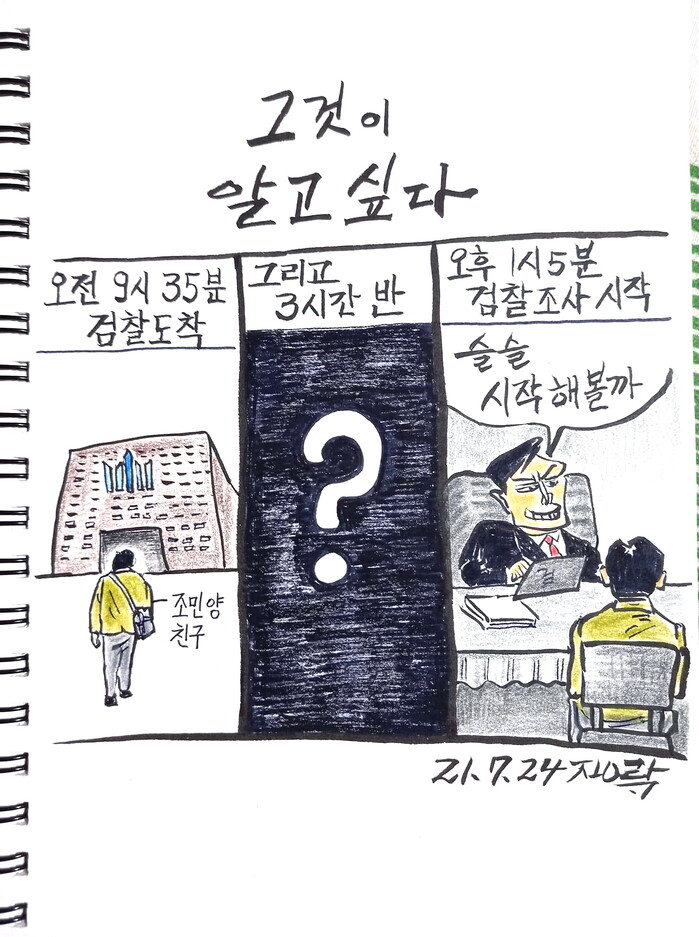 그것이
알고 싶다
오전 9시 35분
검찰도착
그리고
3시간 반
오후 1시 5분
검찰 조사 시작
슬슬
시작 해볼까
?
조민양
친구
검
21.7.24